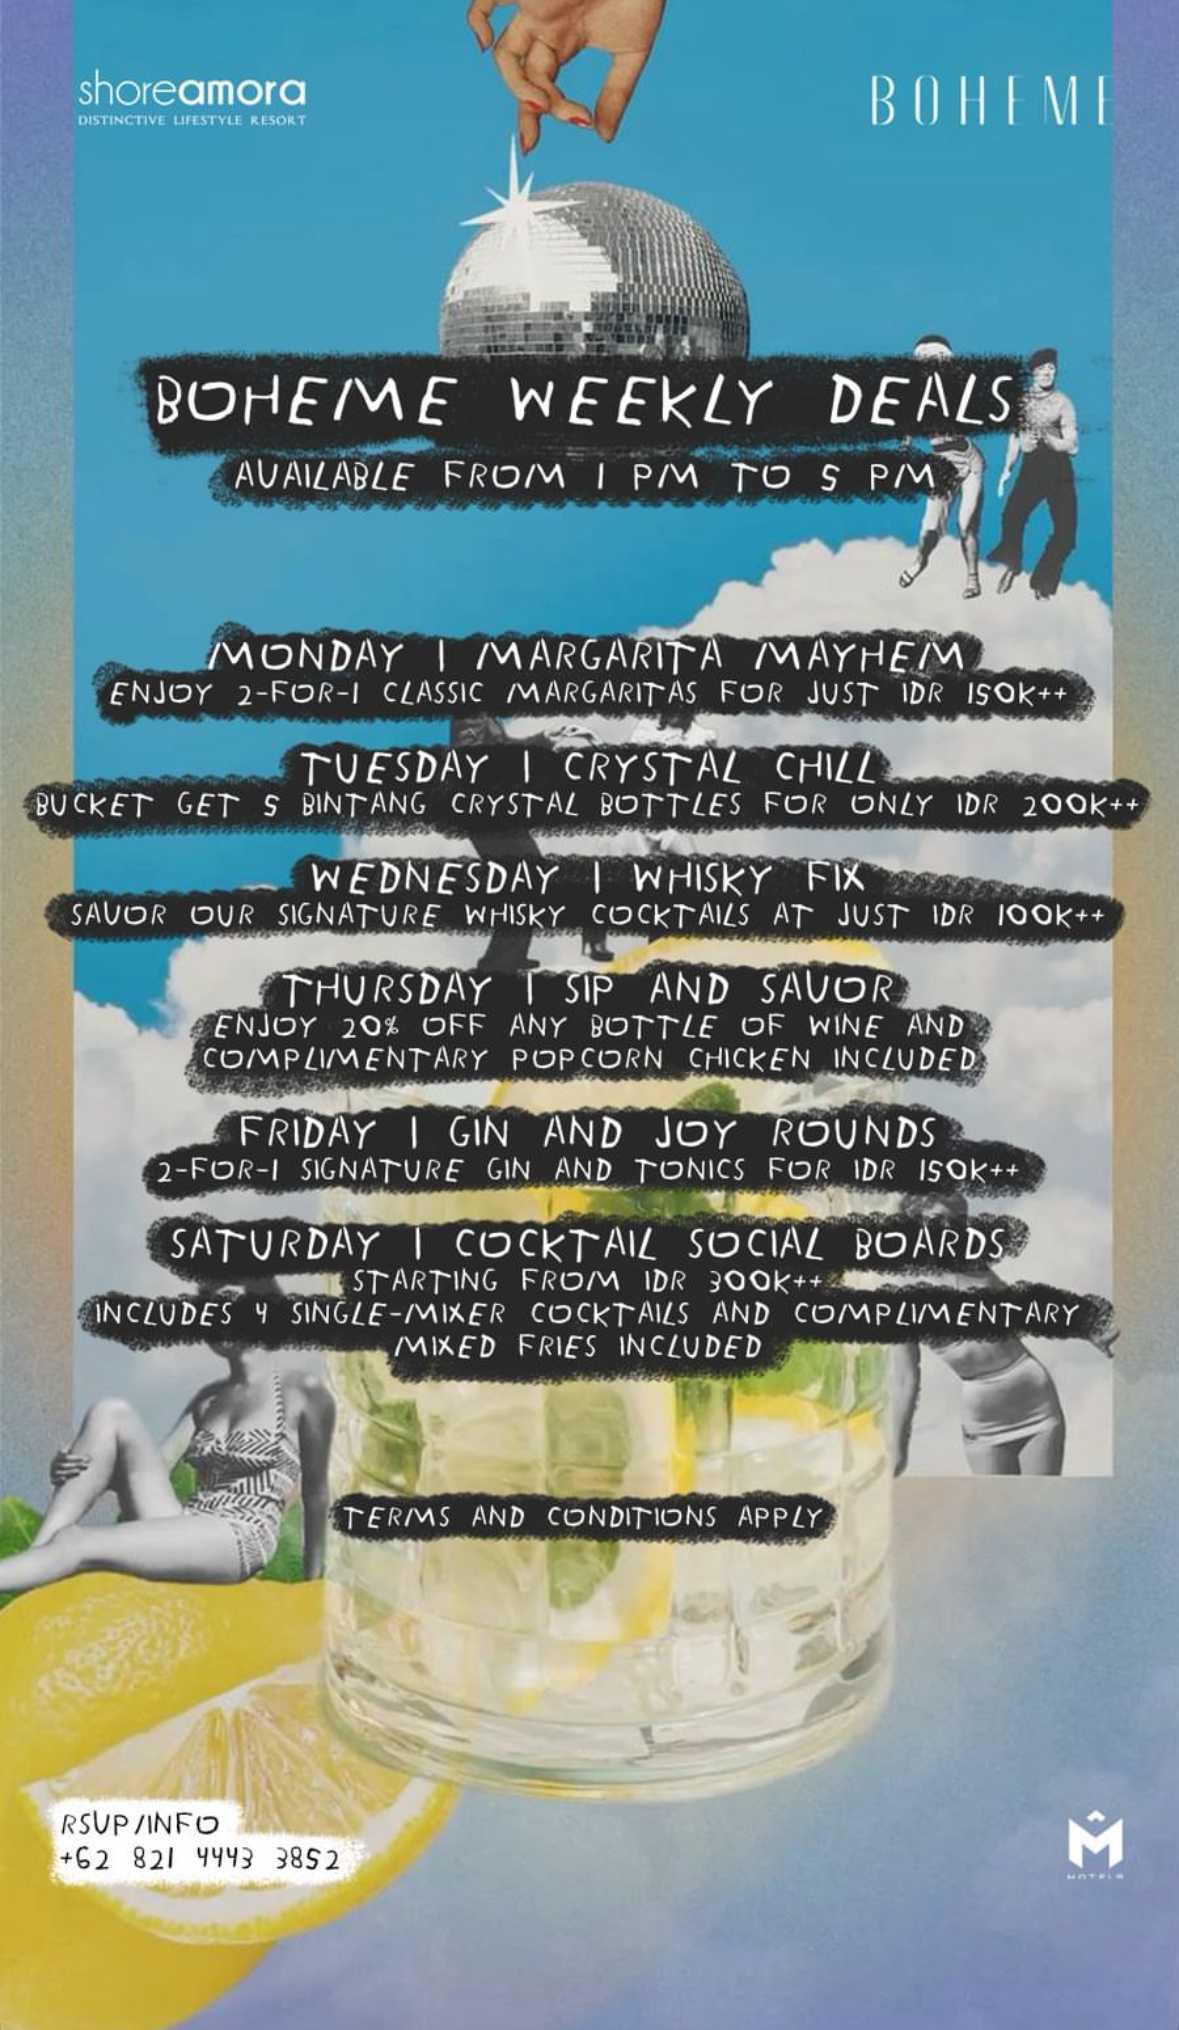 shoreamora
DISTINCTIVE LIFESTYLE RESORT
BOHEME
BOHEME WEEKLY DEALS
AVAILABLE FROM 1 PM TO 5 PM
MONDAY | MARGARITA MAYHEM
ENJOY 2-FOR-1 CLASSIC MARGARITAS FOR JUST IDR 150K++
TUESDAY | CRYSTAL CHILL
BUCKET GET 5 BINTANG CRYSTAL BOTTLES FOR ONLY IDR 200K++
WEDNESDAY | WHISKY FIX
SAVOR OUR SIGNATURE WHISKY COCKTAILS AT JUST IDR 100K++
THURSDAY | SIP AND SAVOR
ENJOY 20% OFF ANY BOTTLE OF WINE AND
COMPLIMENTARY POPCORN CHICKEN INCLUDED
FRIDAY | GIN AND JOY ROUNDS
2-FOR-1 SIGNATURE GIN AND TONICS FOR IDR 150K++
SATURDAY | COCKTAIL SOCIAL BOARDS
STARTING FROM IDR 300K++
INCLUDES 4 SINGLE-MIXER COCKTAILS AND COMPLIMENTARY
MIXED FRIES INCLUDED
TERMS AND CONDITIONS APPLY
RSVP/INFO
+62 821 4443 3852
M
HOTELS